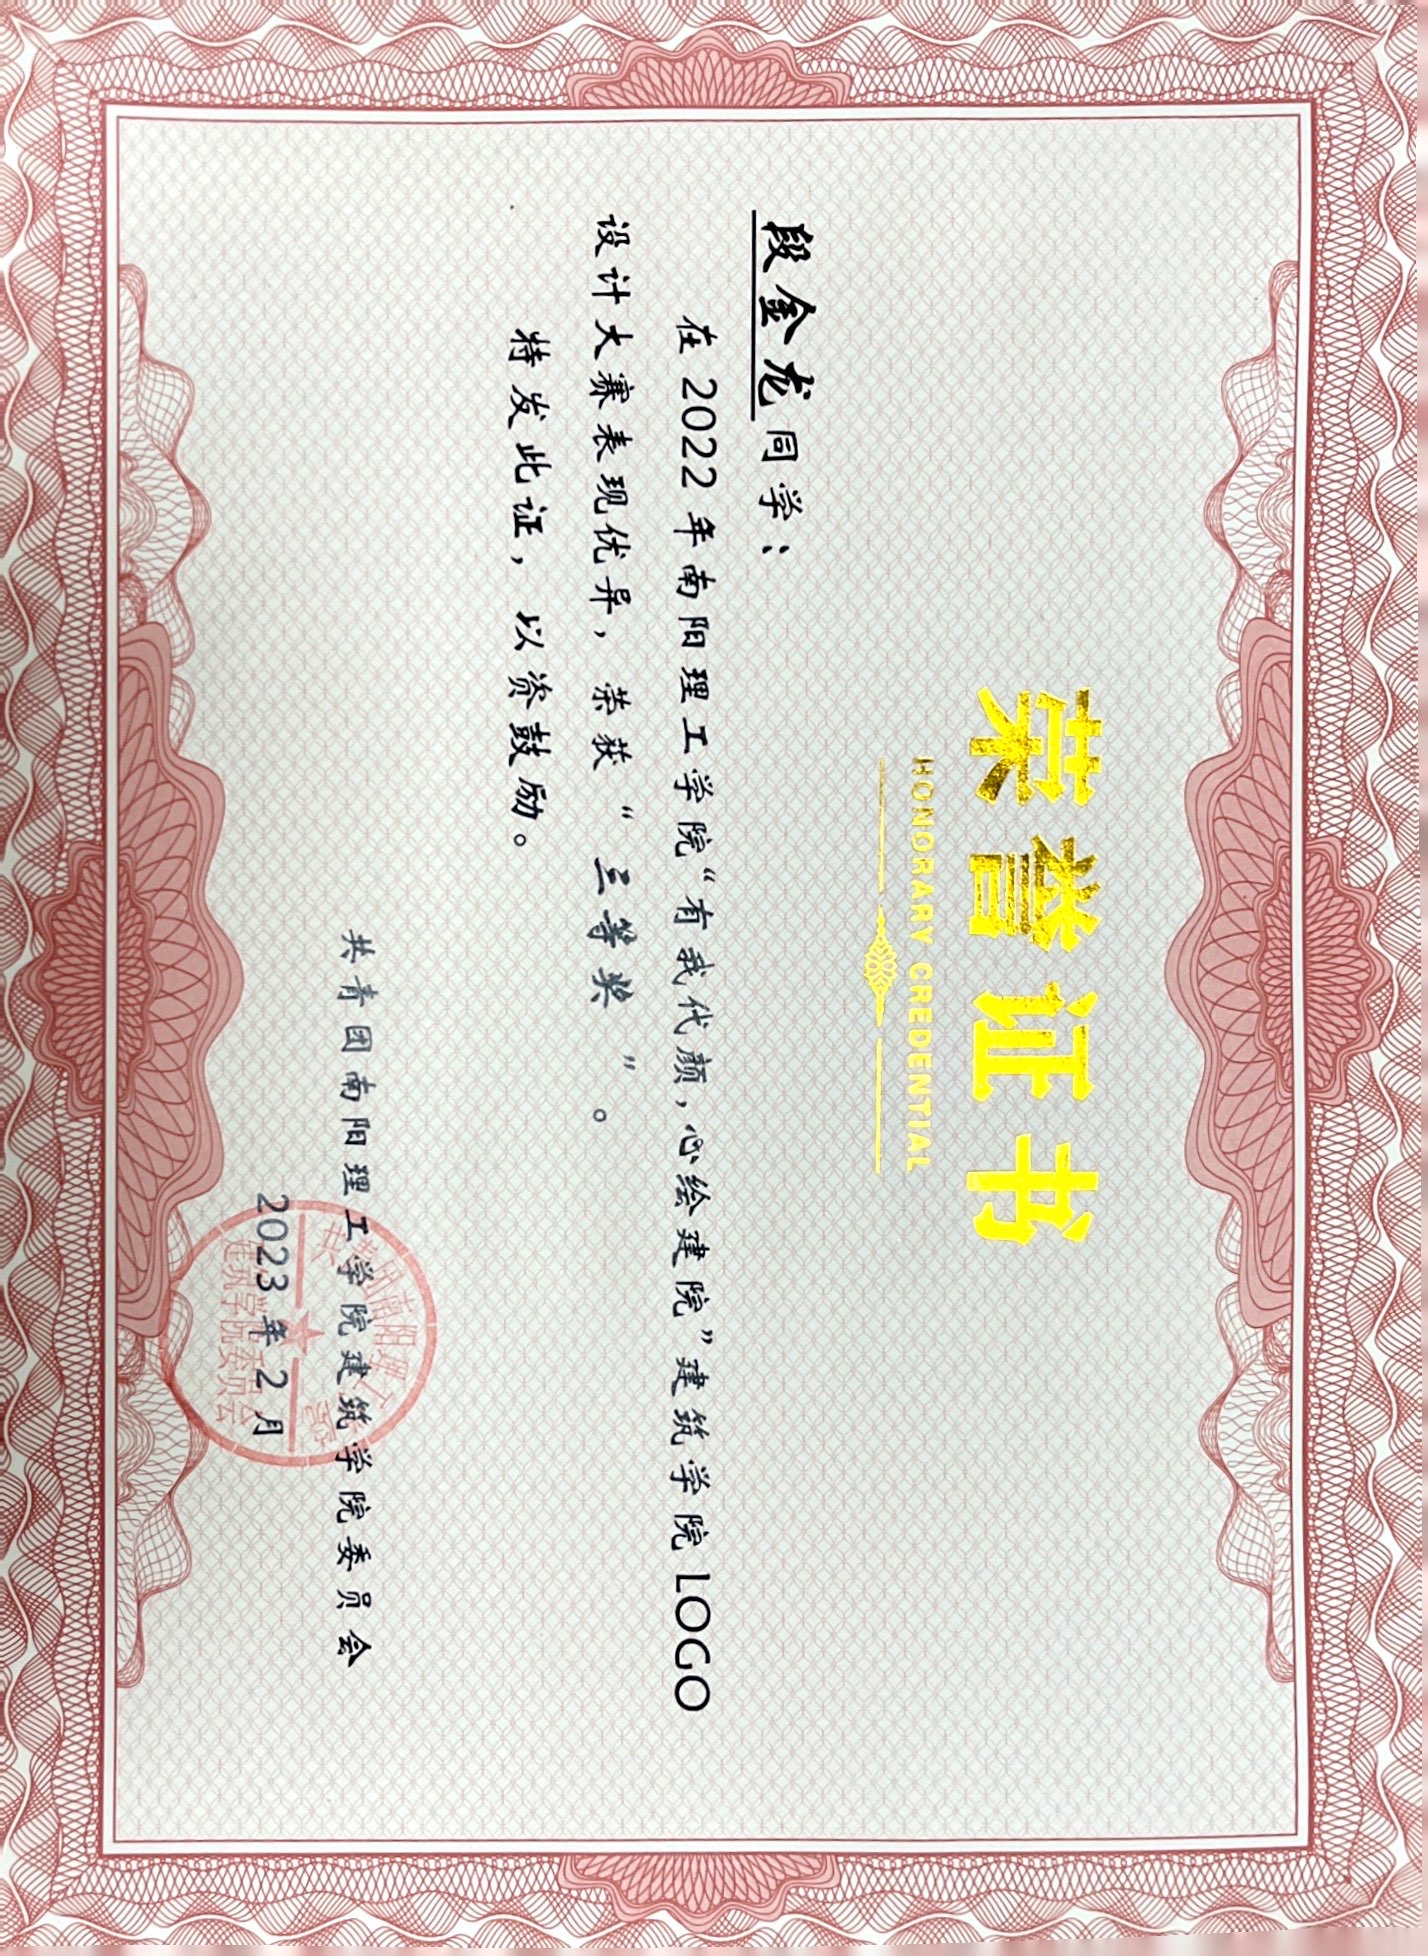 荣誉证书
HONORARY CREDENTIAL
段金龙同学：
在 2022 年南阳理工学院“有我代颜，心绘建院”建筑学院 LOGO
设计大赛表现优异，荣获“ 三等奖 ”。
特发此证，以资鼓励。
共青团南阳理工学院建筑学院委员会
2023 年 2 月
建筑学院委员会